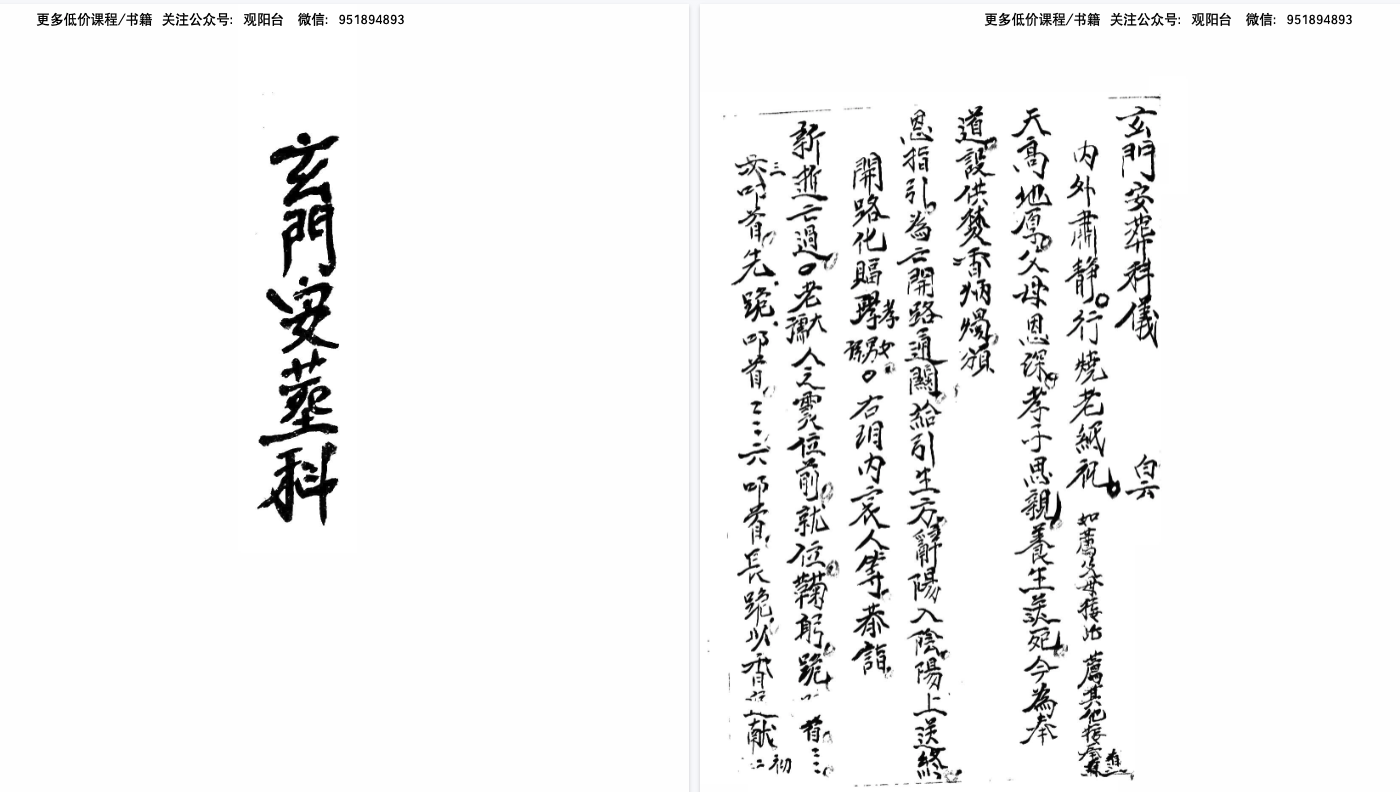 更多低价课程/书籍 关注公众号: 观阳台 微信: 951894893
玄門安葬科
更多低价课程/书籍 关注公众号: 观阳台 微信: 951894893
玄門安葬科儀 白云
内外肅静行燒老紙祝 如薦父母接此 薦其他接
天高地厚父母恩深孝子思親養生送死今為奉
道設供焚香炳燭頒
恩指引為亡開路通關給引生方辭陽入陰陽上送終
開路化賜孝 右玥内哀人等恭詣
新逝亡過老 大人之靈位前就位鞠躬跪 首三
三叩首先跪叩首三三六叩首長跪以香 献 初二